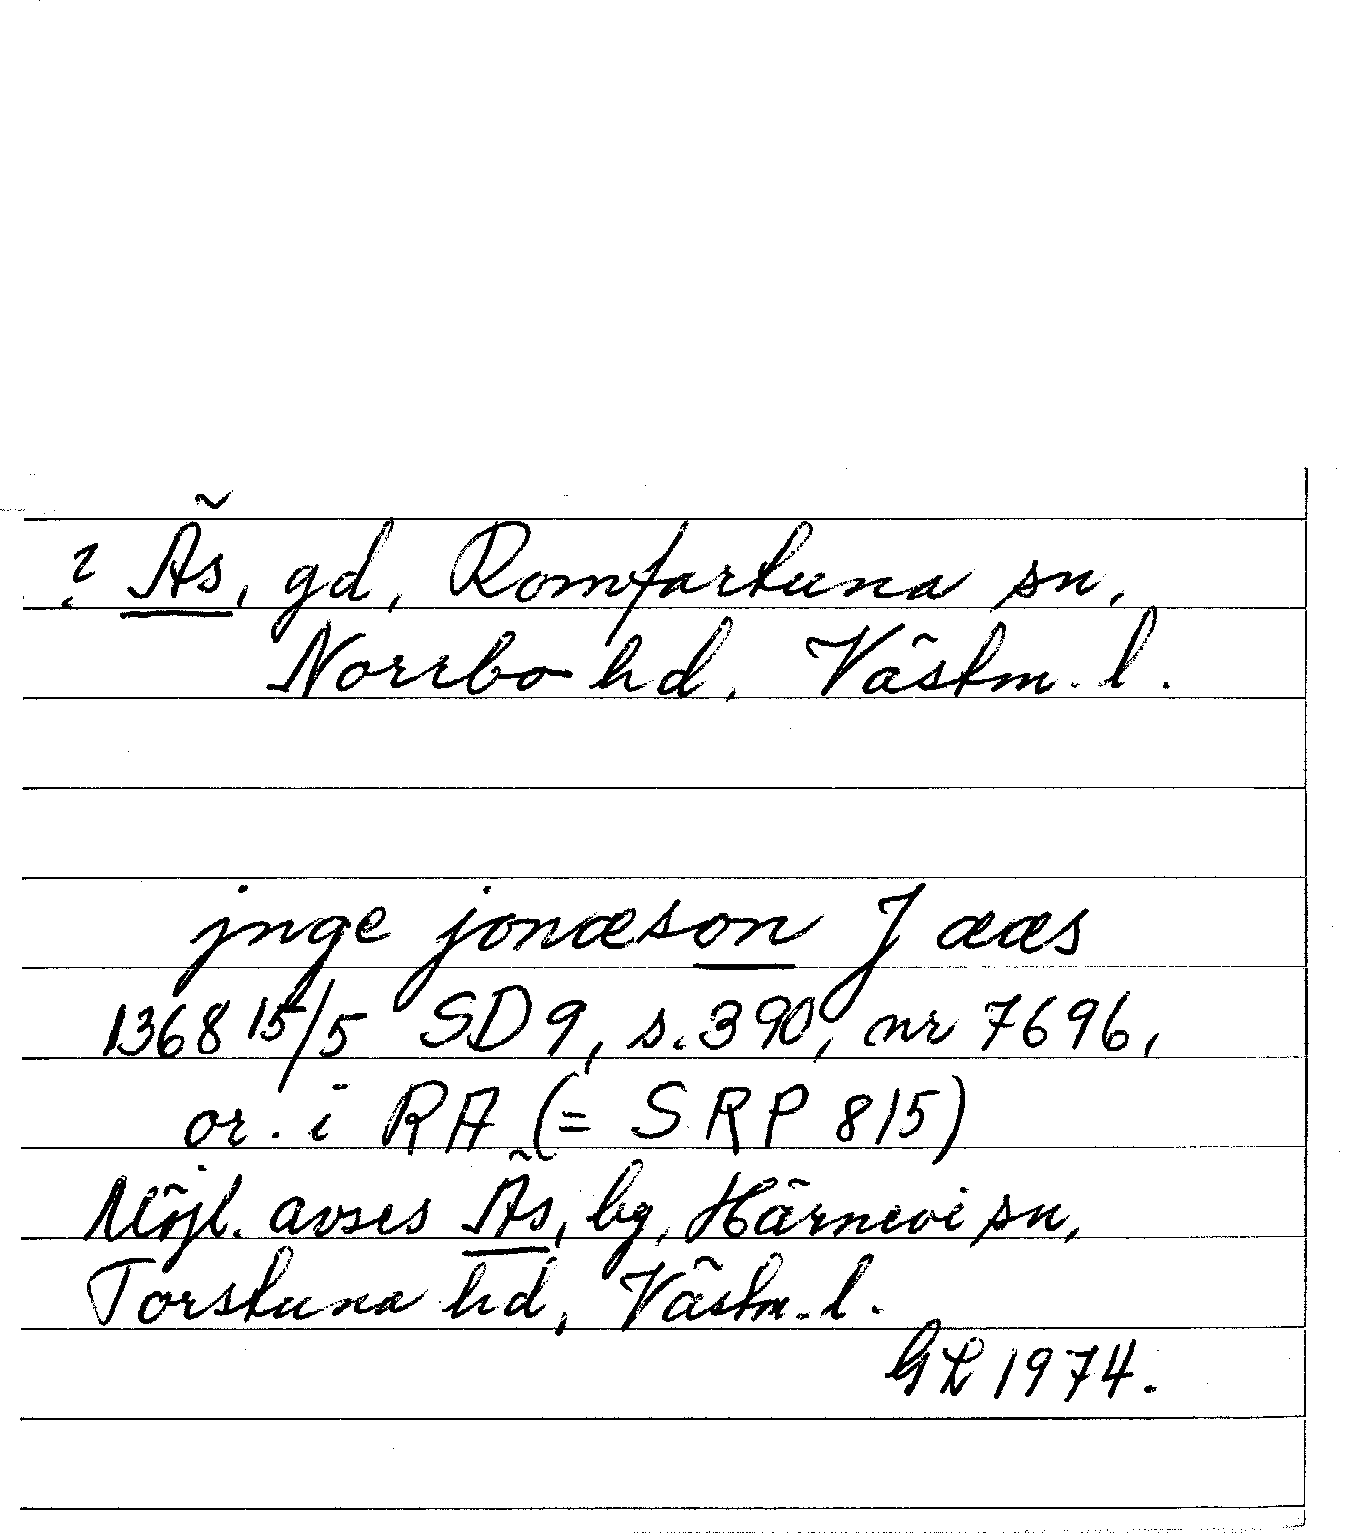 ? Äs, gd, Romfartuna sn,
Norrbo hd, Västm. l.
jnge jonæson J ææs
1368 15/5 SD 9, s. 390, nr 7696,
or. i RA (= SRP 815)
Möjl. avses Äs, by, Härnevi sn,
Torstuna hd, Västm. l.
GL 1974.